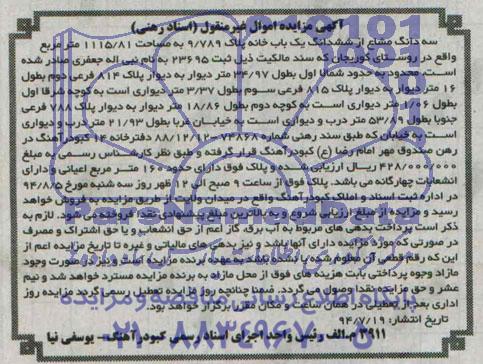 آگهی مزایده اموال غیرمنقول (اسناد رهنی)
سه دانگ مشاع از ششدانگ یک باب خانه پلاک ۹/۷۸۹ به مساحت ۱۱۱۵/۸۱ متر مربع
واقع در روستای کوریجان که سند مالکیت ذیل ثبت ۲۳۶۹۵ به نام نبی اله جعفری صادر شده
است. محدود به حدود شمالا اول بطول ۳۴/۹۷ متر دیوار به دیوار پلاک ۸۱۴ فرعی دوم بطول
۱۶ متر دیوار به دیوار پلاک ۸۱۵ فرعی سوم بطول ۳/۳۷ متر دیواری است به کوچه شرقا اول
بطول ۱/۰۶ متر دیواری است به کوچه دوم بطول ۱۸/۸۶ متر دیوار به دیوار پلاک ۷۸۸ فرعی
جنوبا بطول ۵۳/۸۹ متر درب و دیواری است به خیابان غربا بطول ۲۱/۹۳ متر درب و دیواری
است به خیابان که طبق سند رهنی شماره ۷۳۸۶۸-۸۸/۱۲/۱۲ دفترخانه ۱۴ کبودرآهنگ در
رهن صندوق مهر امام رضا (ع) کبودرآهنگ قرار گرفته و طبق نظر کارشناس رسمی به مبلغ
۴۲۸/۰۰۰/۰۰۰ ریال ارزیابی شده و پلاک فوق دارای حدود ۱۶۰ متر مربع اعیانی و دارای
انشعابات چهارگانه می باشد. پلاک فوق از ساعت ۹ صبح الی ۱۲ ظهر روز سه شنبه مورخ ۹۴/۸/۵
در اداره ثبت اسناد و املاک کبودرآهنگ واقع در میدان ولایت از طریق مزایده به فروش خواهد
رسید و مزایده از مبلغ ارزیابی شروع و به بالاترین مبلغ پیشنهادی نقدا فروخته می شود. لازم به
ذکر است پرداخت بدهی های مربوط به آب، برق، گاز اعم از حق انشعاب و یا حق اشتراک و مصرف
در صورتی که مورد مزایده دارای آنها باشد و نیز بدهی های مالیاتی و غیره تا تاریخ مزایده اعم از
این که رقم قطعی آن معلوم شده یا نشده باشد به عهده برنده مزایده است و نیز در صورت وجود
مازاد وجوه پرداختی بابت هزینه های فوق از محل مازاد به برنده مزایده مسترد خواهد شد و نیم
عشر و حق مزایده نقدا وصول می گردد. ضمنا چنانچه روز مزایده تعطیل رسمی گردد مزایده روز
اداری بعد از تعطیلی در همان ساعت و مکان مقرر برگزار خواهد بود.
تاریخ انتشار: ۹۴/۷/۱۹
۳۹۱۱ م-الف رئیس واحد اجرای اسناد رسمی کبودرآهنگ – یوسفی نیا
پایگاه اطلاع رسانی مناقصه و مزایده
۰۲۱-۸۸۳۴۹۶۷۰-۵